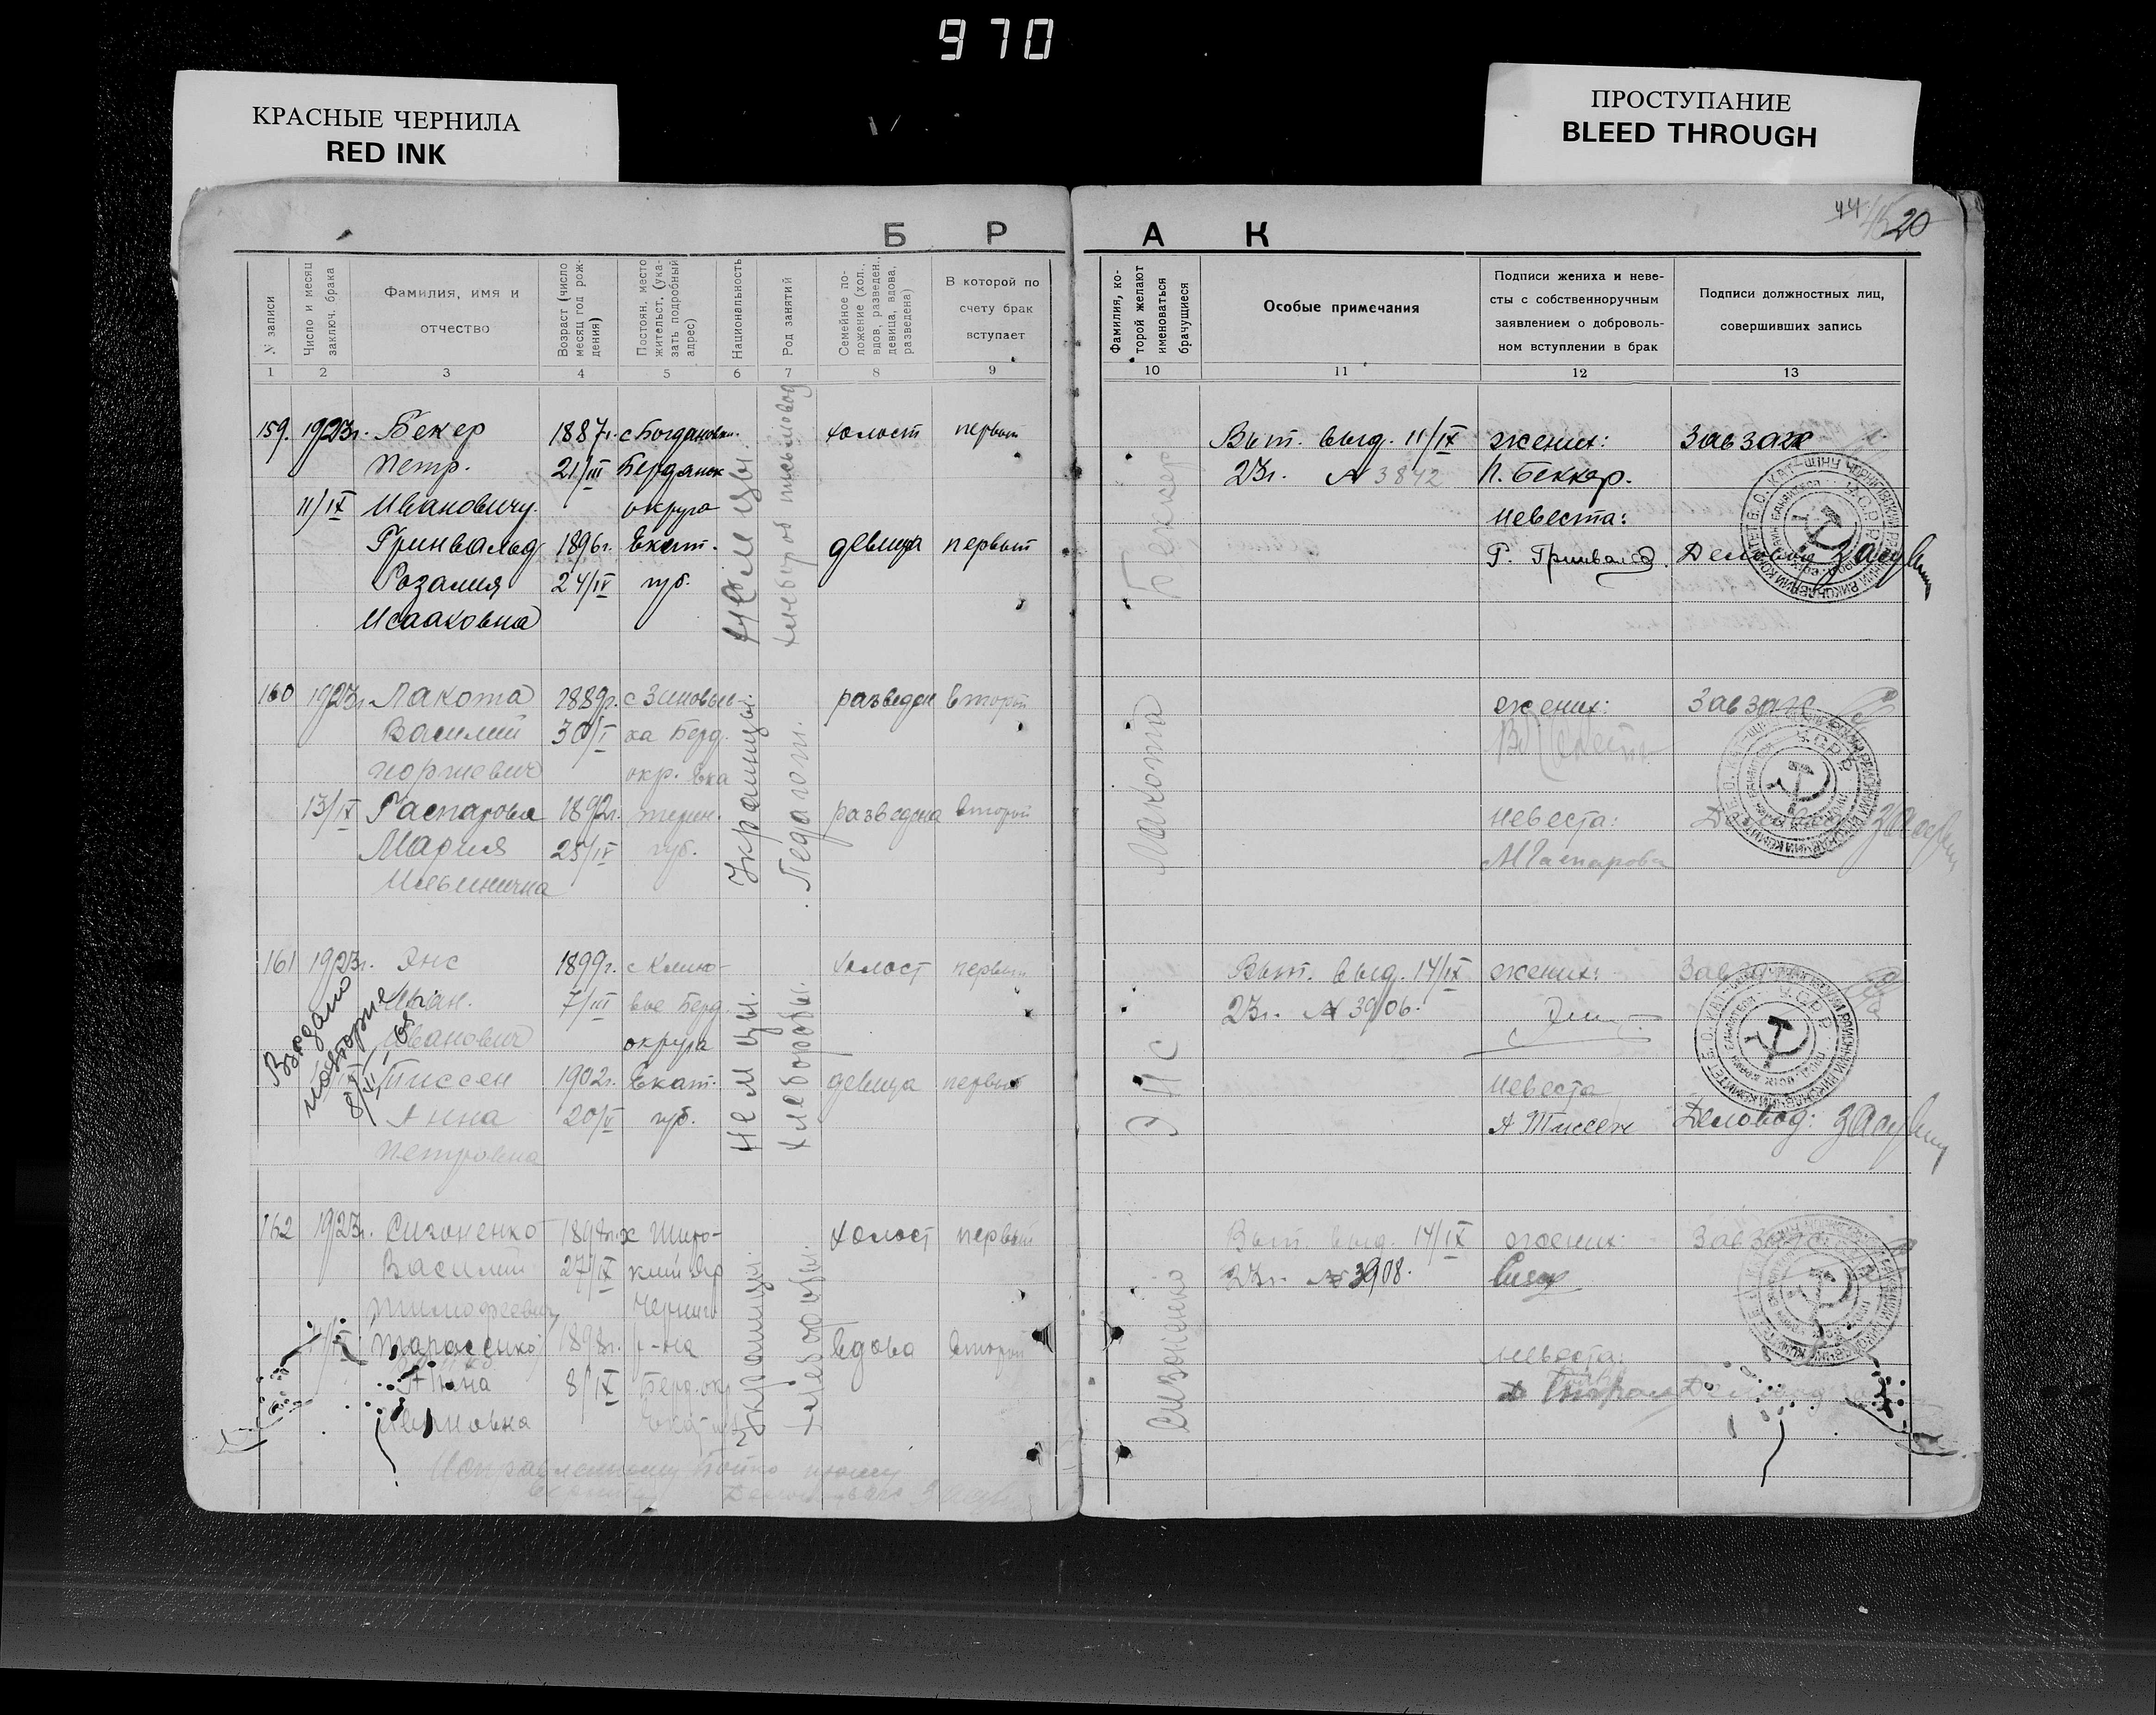 970
КРАСНЫЕ ЧЕРНИЛА
RED INK
ПРОСТУПАНИЕ
BLEED THROUGH
44 45 20
Б Р А К
№ записи
Число и месяц заключ. брака
Фамилия, имя и отчество
Возраст (число месяц год рождения)
Постоян. место жительст. (указать подробный адрес)
Национальность
Род занятий
Семейное положение (хол., вдов, разведен., девица, вдова, разведена)
В которой по счету брак вступает
Фамилия, которой желают именоваться брачущиеся
Особые примечания
Подписи жениха и невесты с собственноручным заявлением о добровольном вступлении в брак
Подписи должностных лиц, совершивших запись
1 2 3 4 5 6 7 8 9 10 11 12 13
159. 1923г. Бекер 1887г. с Богдановки. холост первый Вып. выд. 11/IX жених: Завзагс
Петр. 21/III Бердянск 23г. № 3842 П. Беккер.
11/IX Ивановичу. округа Невеста:
Гринвальд 1896г. Екат. девица первый Г. Гринвальд. Деловод
Розалия 24/IV губ.
Исааковна
Немцы.
хлебороб письмовод
Беккер
160 1923г. Лакота 1889г. с Зиновьев- разведен второй жених: Завзагс
Василий 30/I ка Берд.
Георгиевич окр. Ека
13/IX Гаспарова 1892г. терин. разведена второй Невеста:
Мария 25/IV губ. М Гаспарова
Ильинична
Украинцы.
Педагоги.
Лакота
161 1923г. Энс 1899г. с Клино- холост первый Вып. выд. 14/IX жених: Завзагс
Иван. 7/III вое Берд. 23г. № 3906.
Иванович округа
Тиссен 1902г. Екат. девица первый Невеста
Анна 20/V губ. А Тиссен Деловод:
Петровна
Выдано повторные
Немцы.
Хлеборобы.
Энс
162 1923г. Сизоненко х Широ- холост первый Вып выд. 14/IX жених: Завзагс
Василий 27/IX кий Яр 23г. № 3908. Сизо
Тимофеевич Черниго
Тарасенко 1898г. р-на вдова второй
Анна 8/IX Берд. окр Невеста:
Украинцы.
Хлеборобы.
Сизоненко